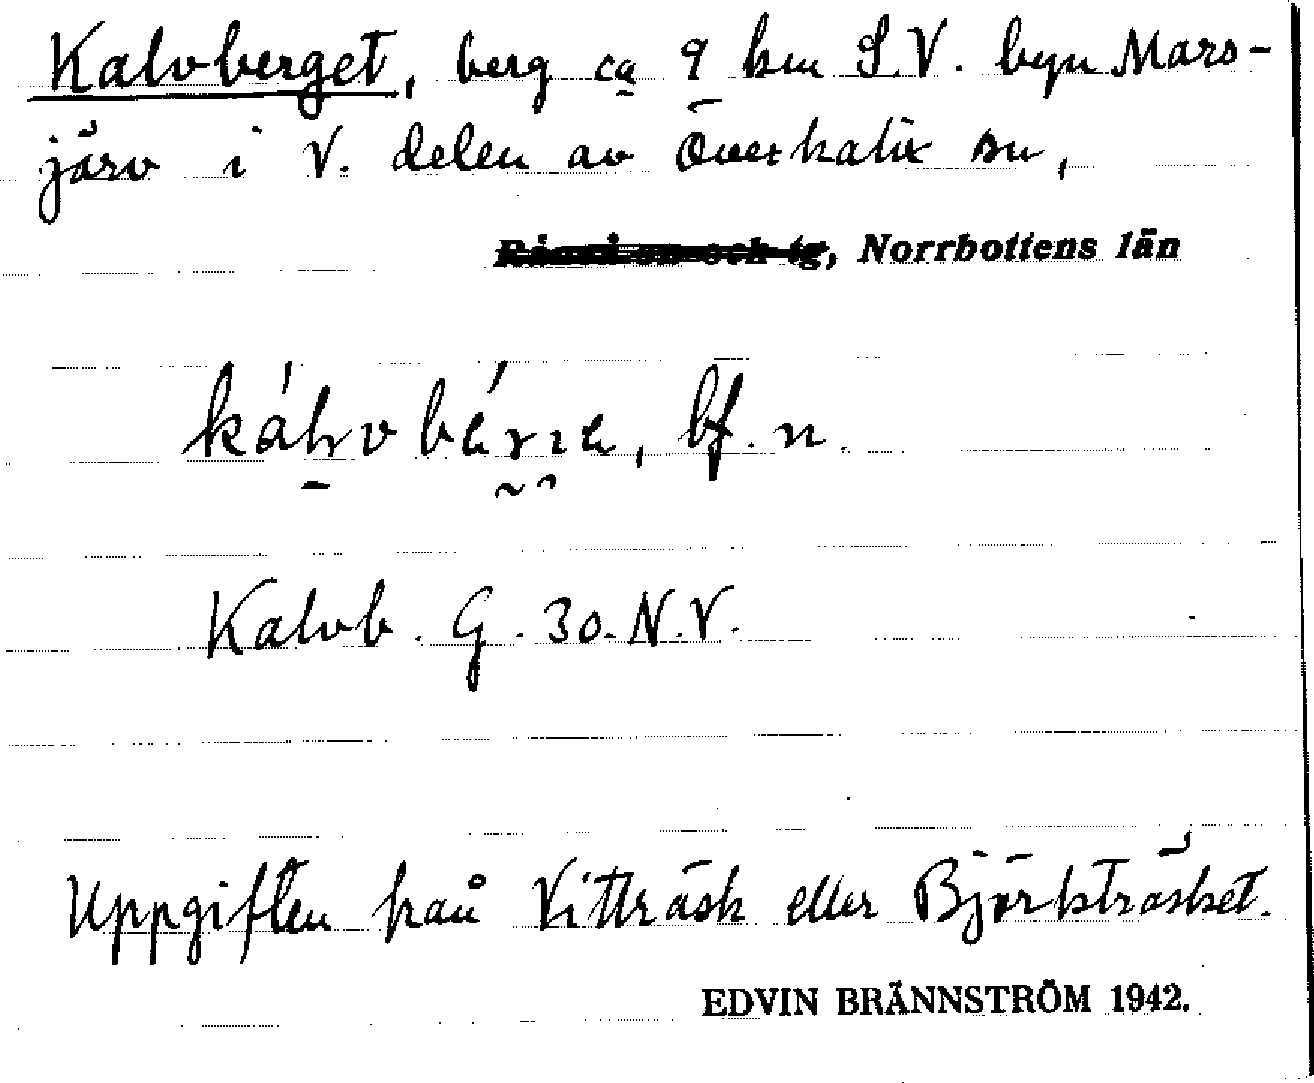 Kalvberget, berg ca 9 km S.V. byn Mars-
järv i V. delen av Överkalix sn,
, Norrbottens län
bf. n.
Kalvb. G. 30. N.V.
Uppgiften från Vitträsk eller Björkträsket.
EDVIN BRÄNNSTRÖM 1942.